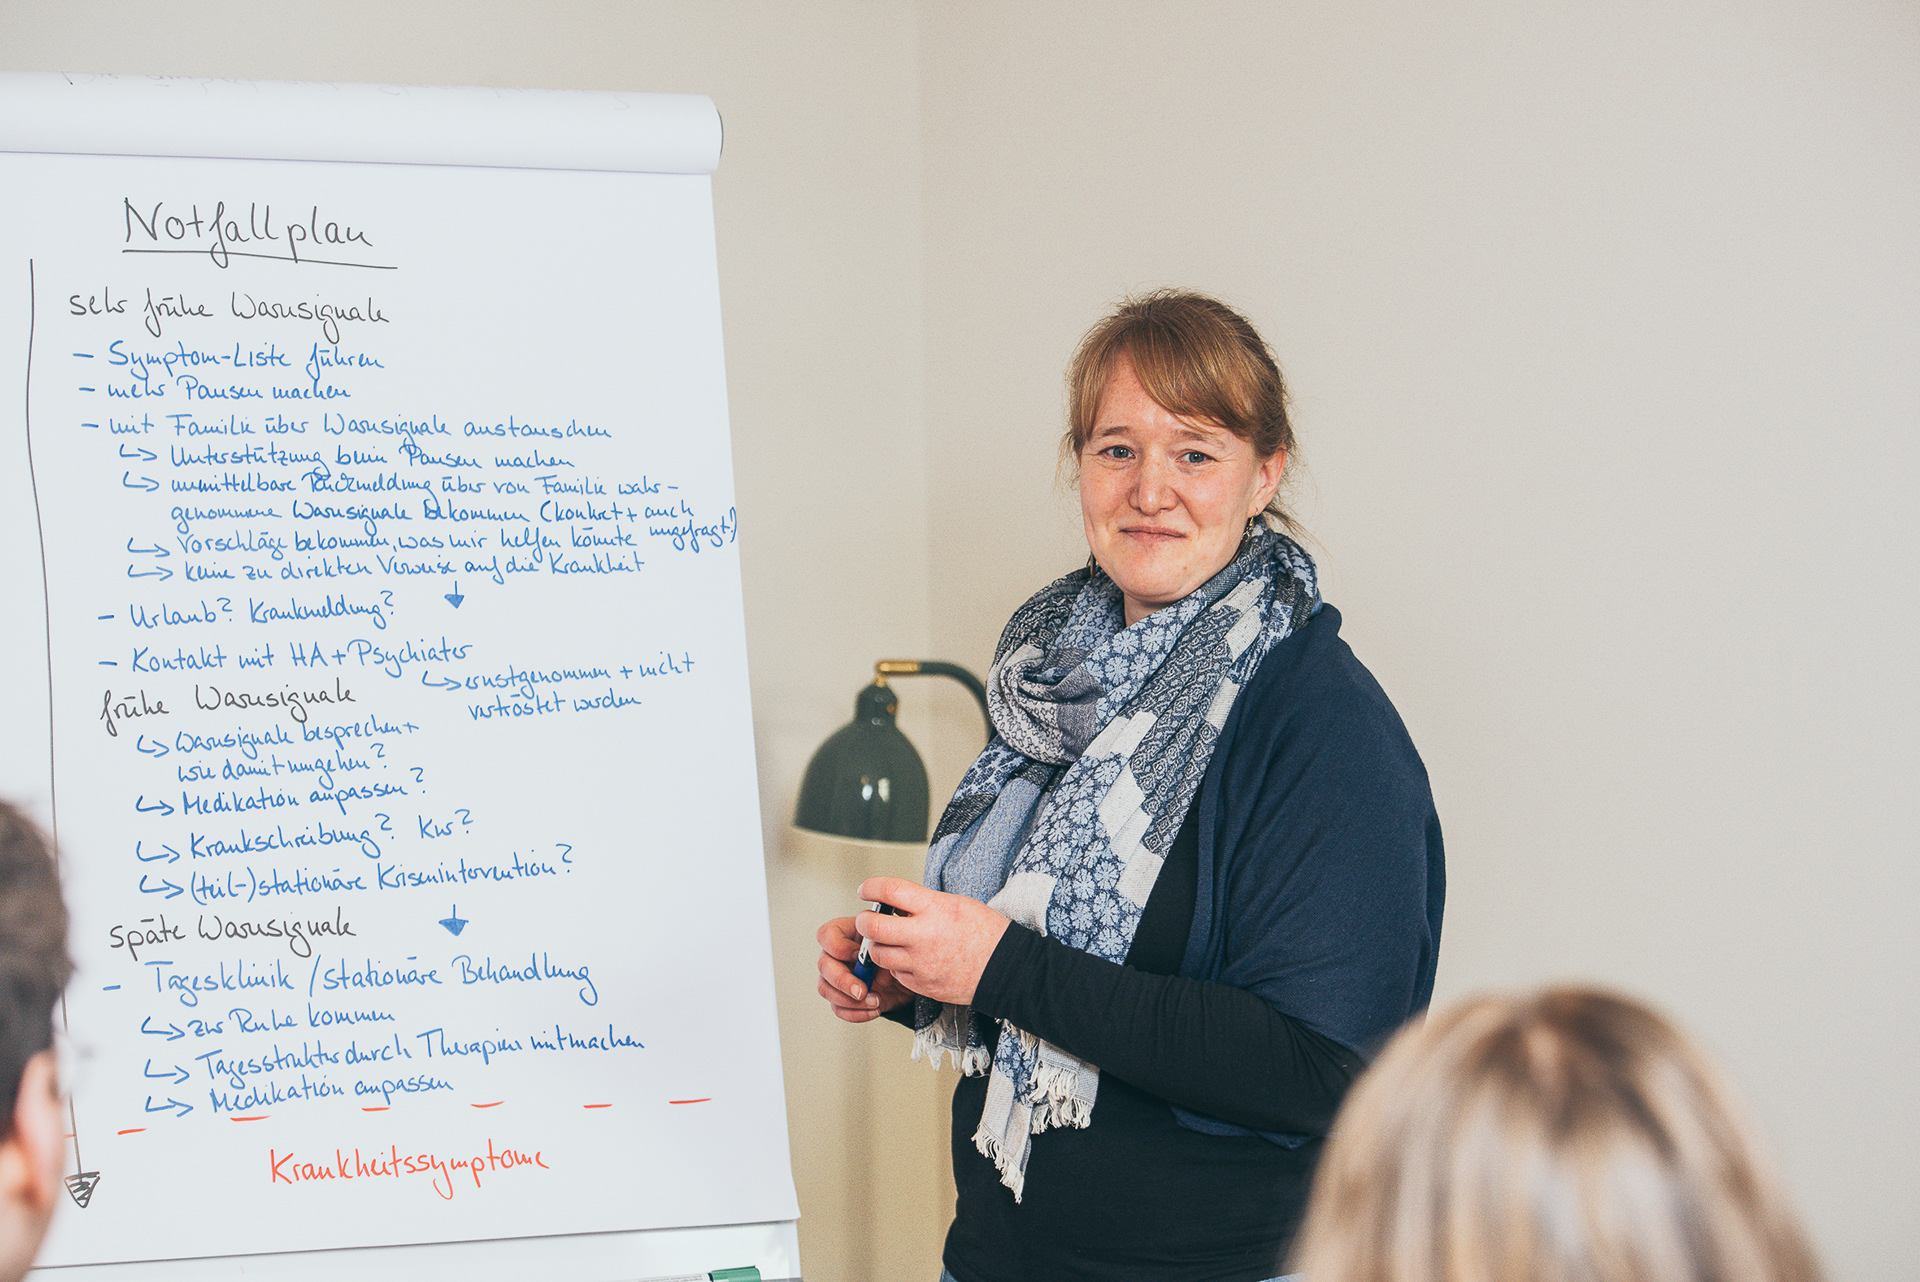 Notfallplan
sehr frühe Warnsignale
- Symptom-Liste führen
- mehr Pausen machen
- mit Familie über Warnsignale austauschen
↳ Unterstützung beim Pausen machen
↳ unmittelbare Rückmeldung über von Familie wahr-
genommene Warnsignale bekommen (konkret + auch
ungefragt!)
↳ Vorschläge bekommen, was mir helfen könnte
↳ keine zu direkten Verweise auf die Krankheit
- Urlaub? Krankmeldung?
- Kontakt mit HA + Psychiater
↳ ernstgenommen + nicht
vertröstet werden
frühe Warnsignale
↳ Warnsignale besprechen +
wie damit umgehen?
↳ Medikation anpassen?
↳ Krankschreibung? KW?
↳ (teil-)stationäre Krisenintervention?
späte Warnsignale
- Tagesklinik / stationäre Behandlung
↳ zur Ruhe kommen
↳ Tagesstruktur durch Therapien mitmachen
↳ Medikation anpassen
Krankheitssymptome